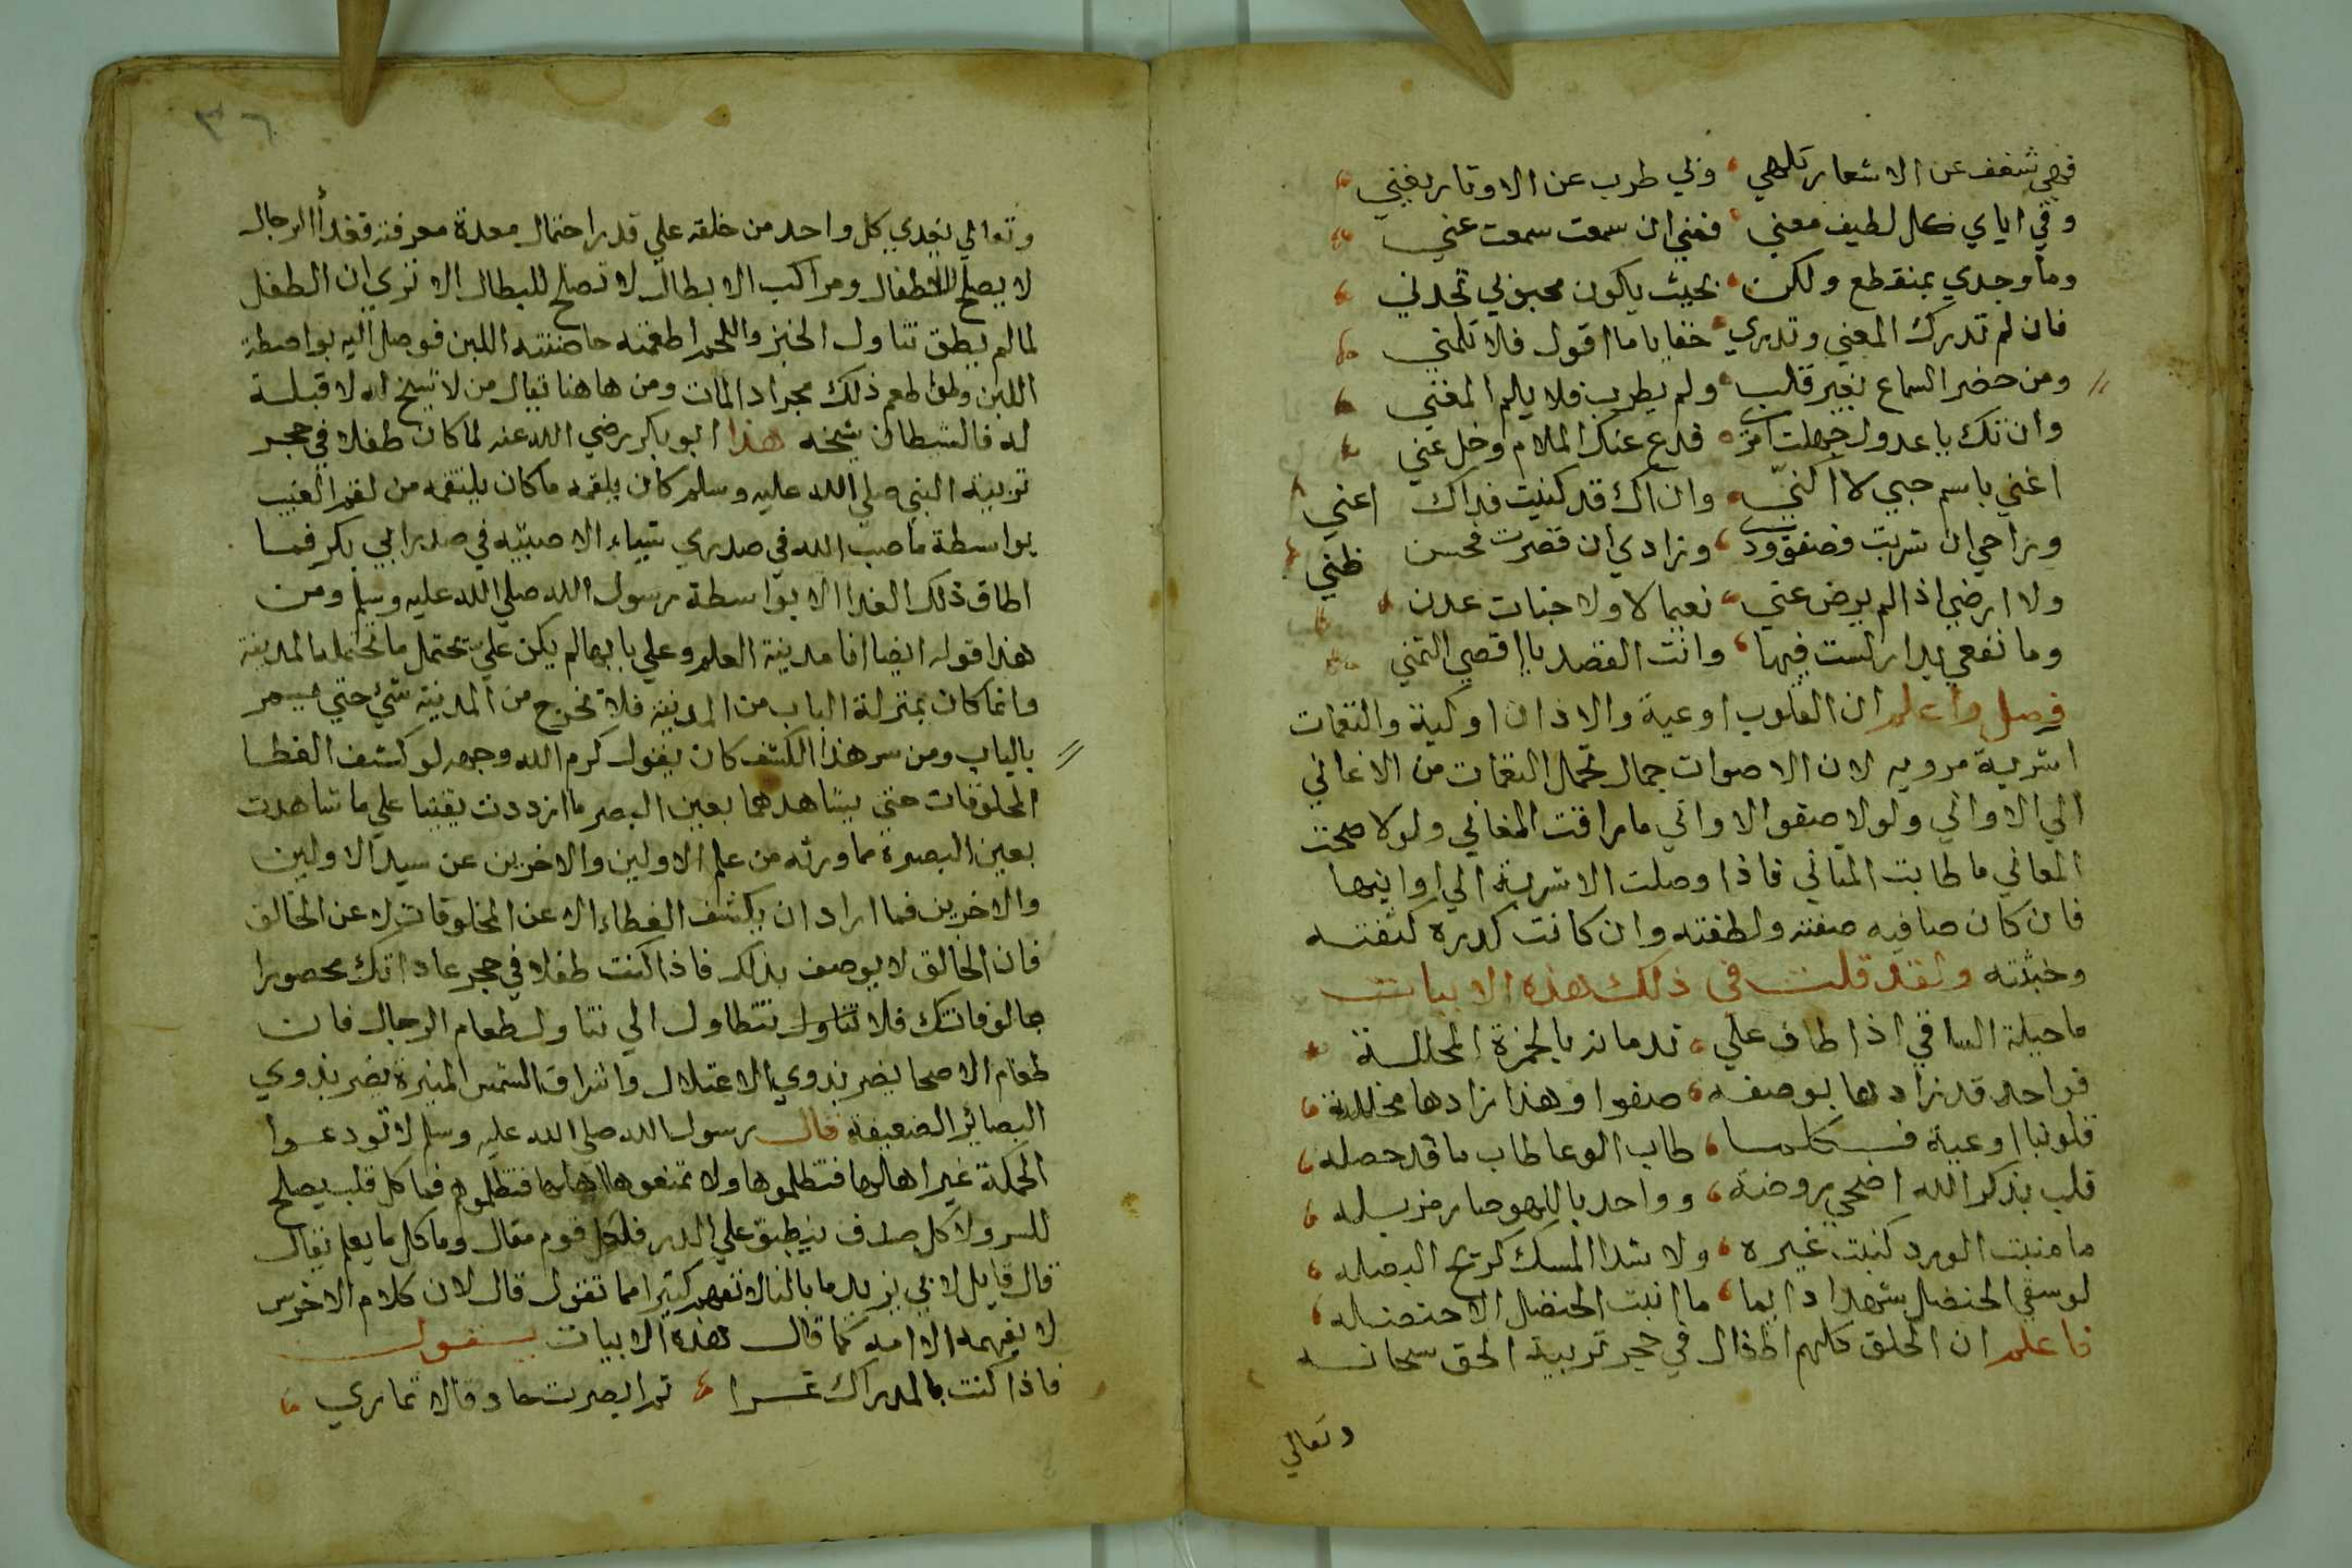 فهي شغف عن الاشعار تلهي ، ولي طرب عن الاوتار يغني
وفي اياي كل لطيف معني ، فغني ان سمعت سمعت عني
وما وجدي بمنقطع ولكن ، بحيث يكون محبوبي تجدني
فان لم تدرك المعني وتدري ، خفايا ما اقول فلا تلمني
ومن حضر السماع بغير قلب ، ولم يطرب فلا يلم المغني
وان تك يا عدول جهلت امري ، فدع عنك الملام وخل عني
اغني باسم حبي لا اكنيه ، وان اك قد كنيت فداك اعني
وراحي ان شربت فصفو ودي ، وزادي ان قصرت فحسن ظني
ولا ارضي اذا لم يرض عني ، نعيما لا ولا جنات عدن
وما نفعي بدار لست فيها ، وانت القصد يا اقصي التمني
فصل واعلم ان القلوب اوعية والاذان اوكية والنغمات
اشربة مرويه لان الاصوات جمال تحمل النغمات من الاغاني
الي الاواني ولولا صفو الاواني ما راقت المغاني ولولا صحت
المعاني ما طابت المثاني فاذا وصلت الاشربة الي اوانيها
فان كان صافيه صفته ولطفته وان كانت كدره كثفته
وخبثته ولقد قلت في ذلك هذه الابيات
ما حيلة الساقي اذا طاف علي ، ندمانه بالخمرة المحللة
فواحد قد زادها بوصفه ، صفوا وهذا زادها مخللة
قلوبنا اوعية فكلما ، طاب الوعا طاب ما قد حصله
قلب بذكر الله اضحي روضة ، وواحد باللهو صار مزبله
ما منبت الورد كنبت غيره ، ولا شذا المسك كريح البصله
لو سقي الحنضل شهدا دايما ، ما انبت الحنضل الا حنضله
فاعلم ان الخلق كلهم اطفال في حجر تربية الحق سبحانه
وتعالي
٣٦
وتعالي يغدي كل واحد من خلقه علي قدر احتمال معدة معرفته فغدأ الرجال
لا يصلح للاطفال ومراكب الابطال لا تصلح للبطال الا تري ان الطفل
لما لم يطق تناول الخبز واللحم اطعمته حاضنته اللبن فوصل اليه بواصطة
اللبن ولو طعم ذلك مجرادا لمات ومن هاهنا يقال من لا شيخ له لا قبلة
له فالشيطان شيخه هذا ابو بكر رضي الله عنه لما كان طفلا في حجر
تربية النبي صلي الله عليه وسلم كان يلقمه ما كان يلتقمه من لقم الغيب
بواسطة ما صب الله في صدري شياء الا صببته في صدر ابي بكر فما
اطاق ذلك الغدا الا بواسطة رسول الله صلي الله عليه وسلم ومن
هذا قوله ايضا انا مدينة العلم وعلي بابها لم يكن علي تحتمل ما تحتمله المدينة
وانما كان بمنزلة الباب من المدينة فلا تخرج من المدينة شئ حتي يمر
بالباب ومن سر هذا الكشف كان يقول كرم الله وجهه لو كشف الغطا
المخلوقات حتي يشاهدهما بعين البصر ما ازددت يقينا علي ما شاهدت
بعين البصيرة مما ورثه من علم الاولين والاخرين عن سيد الاولين
والاخرين فما اراد ان يكشف الغطاء الا عن المخلوقات لا عن الخالق
فان الخالق لا يوصف بذلك فاذا كنت طفلا في حجر عاداتك محصورا
بمالوفاتك فلا تتاول تتطاول الي تناول طعام الرجال فان
طعام الاصحا يضر بذوي الاعتلال واشراق الشمس المنيرة يضر بذوي
البصائر الضعيفة قال رسول الله صلي الله عليه وسلم لا تودعوا
الحكمة غير اهلها فتظلموها ولا تمنعوها اهلها فتظلموهم فما كل قلب يصلح
للسر ولا كل صدف ينطبق علي الدر فلكل قوم مقال وما كل ما يعلم يقال
قال قايل لابي يزيد ما بالنا لا نفهم كثيرا مما تقول قال لان كلام الاخرس
لا يفهمه الا امه كما قال هذه الابيات يقول
فاذا كنت بالمدراك غرا ، ثم ابصرت حادقا لا تماري